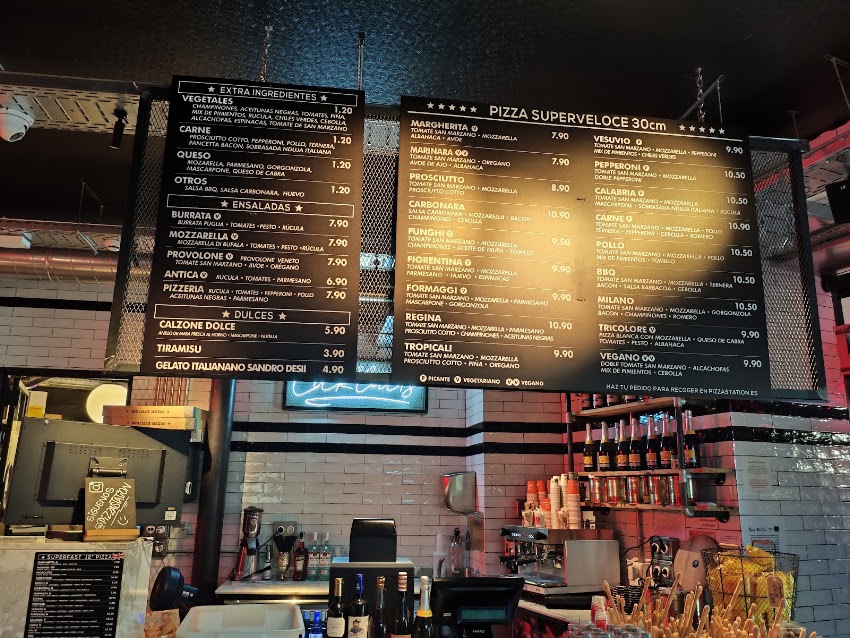 ★ EXTRA INGREDIENTES ★
VEGETALES 1.20
CHAMPIÑONES, ACEITUNAS NEGRAS, TOMATES, PIÑA,
MIX DE PIMIENTOS, RUCULA, CHILES VERDES, CEBOLLA,
ALCACHOFAS, ESPINACAS, TOMATE DE SAN MARZANO
CARNE 1.20
PROSCIUTTO COTTO, PEPPERONI, POLLO, TERNERA,
PANCETTA BACON, SOBRASADA NDUJA ITALIANA
QUESO 1.20
MOZARELLA, PARMESANO, GORGONZOLA,
MASCARPONE, QUESO DE CABRA
OTROS 1.20
SALSA BBQ, SALSA CARBONARA, HUEVO
★ ENSALADAS ★
BURRATA V 7.90
BURRATA PUGLIA • TOMATES • PESTO • RÚCULA
MOZZARELLA V 7.90
MOZZARELLA DI BUFALA • TOMATES • PESTO • RÚCULA
PROVOLONE V PROVOLONE VENETO 7.90
TOMATE SAN MARZANO • AVOE • OREGANO
ANTICA V RUCULA • TOMATES • PARMESANO 6.90
PIZZERIA RUCULA • TOMATES • PEPPERONI • POLLO 7.90
ACEITUNAS NEGRAS • PARMESANO
★ DULCES ★
CALZONE DOLCE 5.90
MASCARPONE • NUTELLA
TIRAMISU 3.90
GELATO ITALIANANO SANDRO DESII 4.90
★★★★★ PIZZA SUPERVELOCE 30cm ★★★★★
MARGHERITA V 7.90
TOMATE SAN MARZANO • MOZZARELLA
ALBAHACA • AVOE
MARINARA VV 7.90
TOMATE SAN MARZANO • OREGANO
AVOE DE AJO • ALBAHACA
PROSCIUTTO 8.90
TOMATE SAN MARZANO • MOZZARELLA
PROSCIUTTO COTTO
CARBONARA 10.90
SALSA CARBONARA • MOZZARELLA • BACON
CHAMPIÑONES • CEBOLLA
FUNGHI V 9.50
TOMATE SAN MARZANO • MOZZARELLA
CHAMPIÑONES • ACEITE DE TRUFA • TOMILLO
FIORENTINA V 9.90
TOMATE SAN MARZANO • MOZZARELLA
PARMESANO • HUEVO • ESPINACAS
FORMAGGI V 9.90
TOMATE SAN MARZANO • MOZZARELLA • PARMESANO
MASCARPONE • GORGONZOLA
REGINA 10.90
TOMATE SAN MARZANO • MOZZARELLA • PARMESANO
PROSCIUTTO COTTO • CHAMPIÑONES • ACEITUNAS NEGRAS
TROPICALI 9.90
TOMATE SAN MARZANO • MOZZARELLA
PROSCIUTTO COTTO • PIÑA • OREGANO
P PICANTE V VEGETARIANO VV VEGANO
VESUVIO P 9.90
TOMATE SAN MARZANO • MOZZARELLA • PEPPERONI
MIX DE PIMIENTOS • CHILES VERDES
PEPPERONI P 10.50
TOMATE SAN MARZANO • MOZZARELLA
DOBLE PEPPERONI
CALABRIA P 10.50
TOMATE SAN MARZANO • MOZZARELLA
MASCARPONE • SOBRASADA NDUJA ITALIANA • RUCULA
CARNE P 10.90
TOMATE SAN MARZANO • MOZZARELLA • POLLO
TERNERA • PEPPERONI • CEBOLLA • ROMERO
POLLO 10.50
TOMATE SAN MARZANO • MOZZARELLA • POLLO
MIX DE PIMIENTOS • TOMILLO
BBQ 10.50
TOMATE SAN MARZANO • MOZZARELLA • TERNERA
BACON • SALSA BARBACOA • CEBOLLA
MILANO 10.50
TOMATE SAN MARZANO • MOZZARELLA • GORGONZOLA
BACON • CHAMPIÑONES • ROMERO
TRICOLORE V 9.90
PIZZA BLANCA CON MOZZARELLA • QUESO DE CABRA
TOMATES • PESTO • ALBAHACA
VEGANO VV 9.90
DOBLE TOMATE SAN MARZANO • ALCACHOFAS
MIX DE PIMIENTOS • CEBOLLA
HAZ TU PEDIDO PARA RECOGER EN PIZZASTATION.ES
SÍGUENOS
@PIZZASTATION
★ SUPERFAST 12" PIZZA